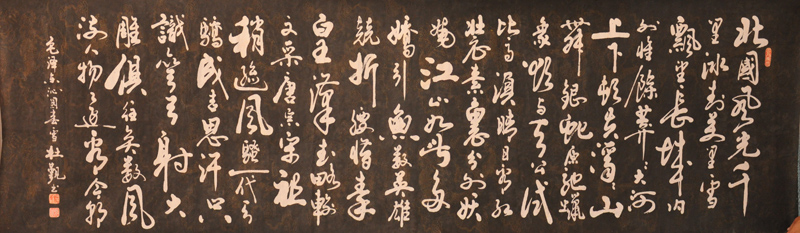 北國風光千
里冰封萬里雪
飄望長城內
外惟餘莽莽大河
上下頓失滔滔山
舞銀蛇原馳蠟
象欲與天公試
比高須晴日看紅
裝素裹分外妖
嬈江山如此多
嬌引無數英雄
競折腰惜秦
皇漢武略輸
文采唐宗宋祖
稍遜風騷一代天
驕成吉思汗只
識彎弓射大
雕俱往矣數風
流人物還看今朝
毛澤東沁園春雪